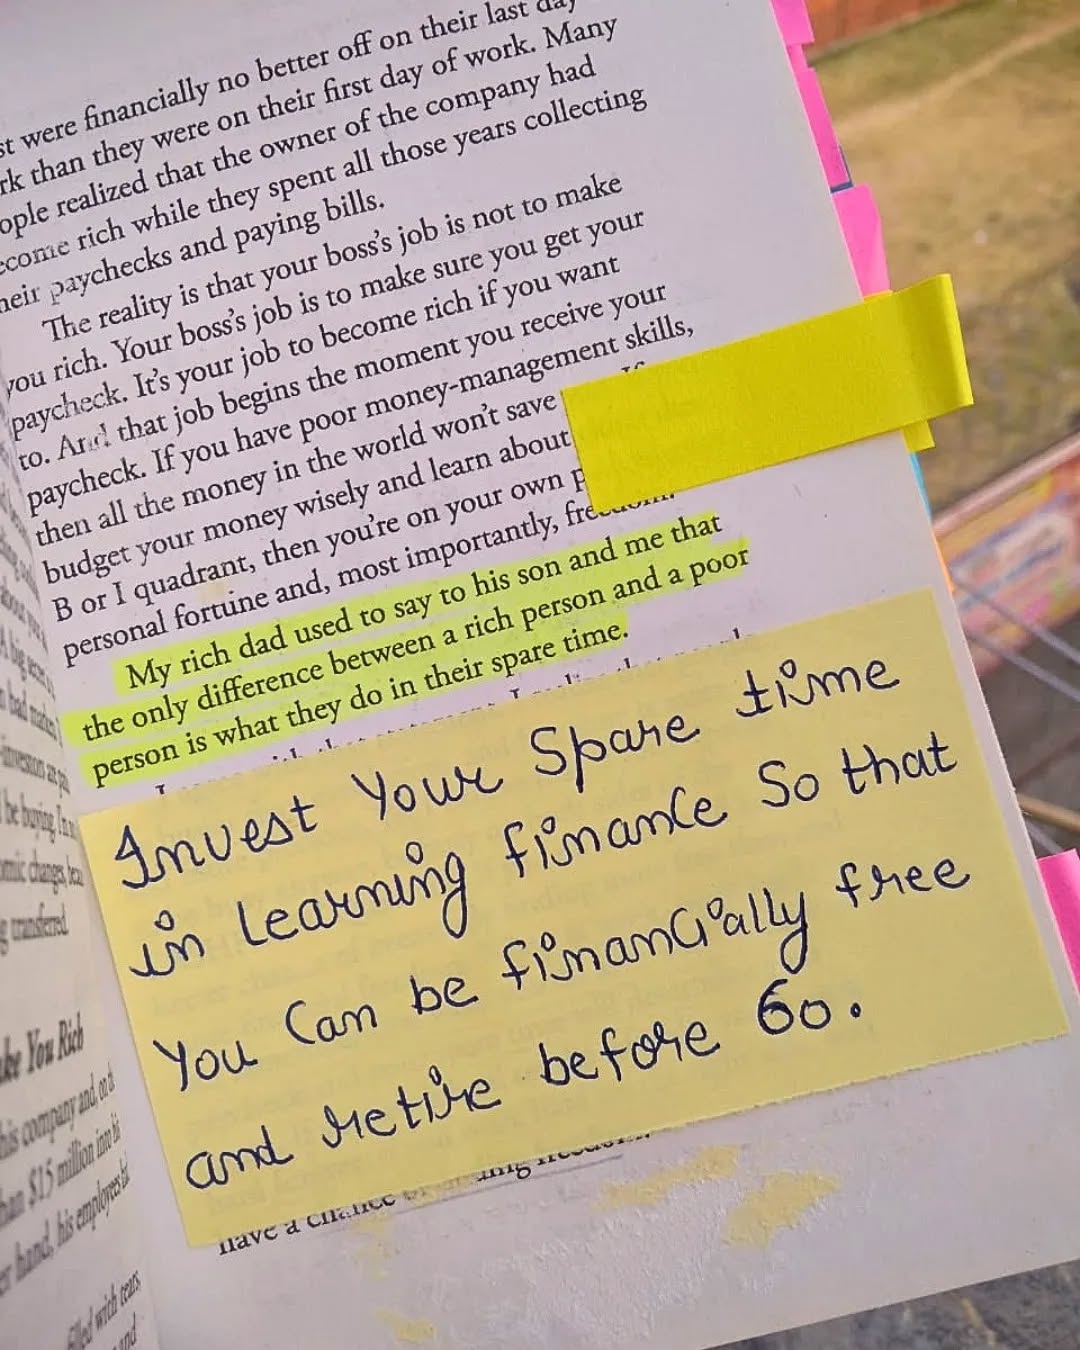 were financially no better off on their last day
than they were on their first day of work. Many
realized that the owner of the company had
rich while they spent all those years collecting
paychecks and paying bills.
The reality is that your boss's job is not to make
you rich. Your boss's job is to make sure you get your
paycheck. It's your job to become rich if you want
to. And that job begins the moment you receive your
paycheck. If you have poor money-management skills,
then all the money in the world won't save
budget your money wisely and learn about
B or I quadrant, then you're on your own
personal fortune and, most importantly, freedom.
My rich dad used to say to his son and me that
the only difference between a rich person and a poor
person is what they do in their spare time.
Invest Your Spare time
in learning finance So that
You Can be financially free
and retire before 60.
have a chance
You Rich
his company and, on
$15 million into his
hand, his employees
filled with tears,
and